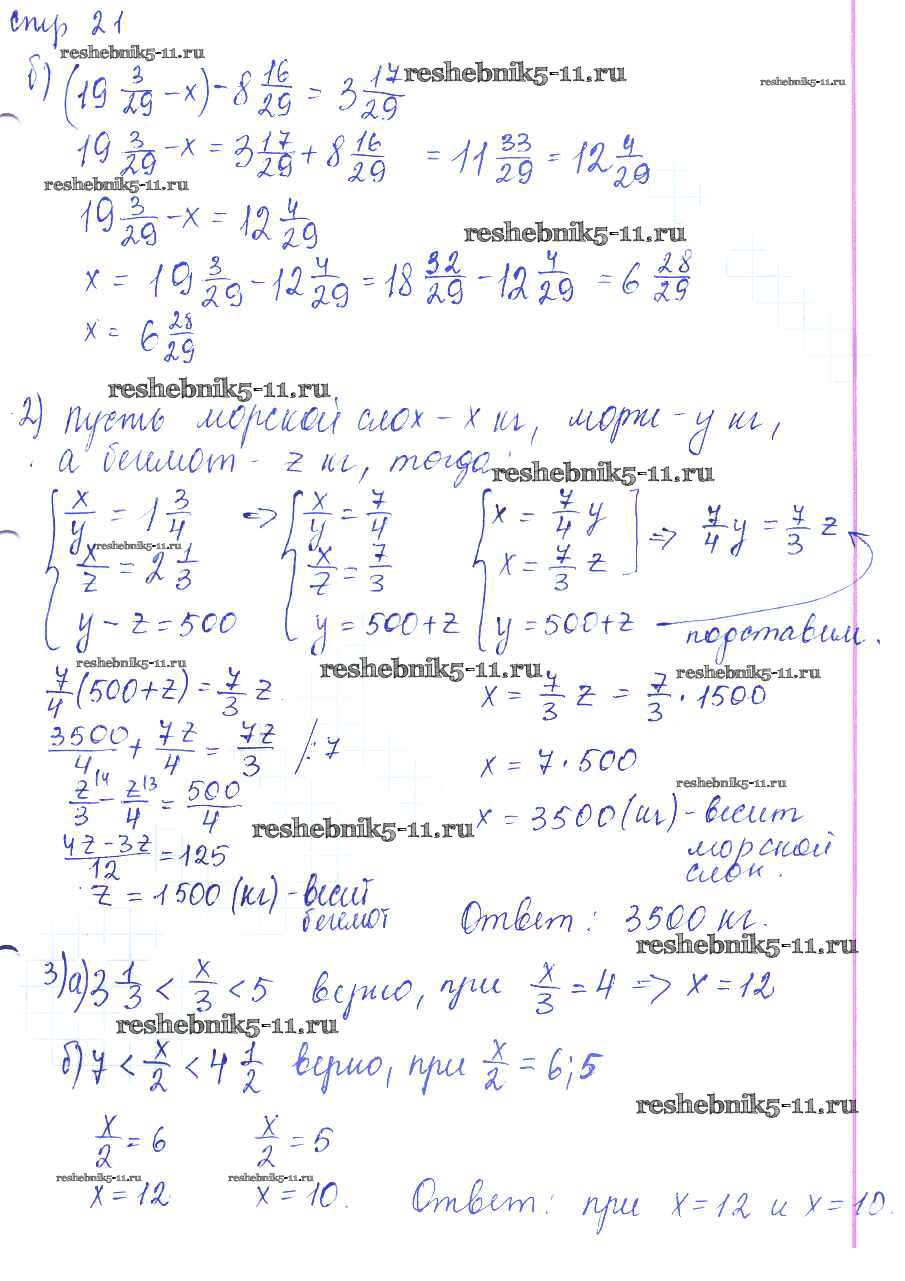 стр 21
reshebnik5-11.ru
б) (19 3/29 - x) - 8 16/29 = 3 17/29
reshebnik5-11.ru
reshebnik5-11.ru
19 3/29 - x = 3 17/29 + 8 16/29 = 11 33/29 = 12 4/29
reshebnik5-11.ru
19 3/29 - x = 12 4/29
reshebnik5-11.ru
x = 19 3/29 - 12 4/29 = 18 32/29 - 12 4/29 = 6 28/29
x = 6 28/29
reshebnik5-11.ru
2) Пусть морской слох - x кг, морж - y кг,
а бегемот - z кг, тогда:
reshebnik5-11.ru
x/y = 1 3/4 => x/y = 7/4 x = 7/4 y => 7/4 y = 7/3 z
reshebnik5-11.ru
x/z = 2 1/3 x/z = 7/3 x = 7/3 z
y - z = 500 y = 500 + z y = 500 + z подставим.
reshebnik5-11.ru reshebnik5-11.ru reshebnik5-11.ru
7/4 (500 + z) = 7/3 z
3500/4 + 7z/4 = 7z/3 /: 7
z/3 |4 - z/4 |3 = 500/4
4z - 3z/12 = 125
z = 1500 (кг) - весит
бегемот
x = 7/3 z = 7/3 · 1500
x = 7 · 500
reshebnik5-11.ru
x = 3500 (кг) - весит
морской
слон.
reshebnik5-11.ru
Ответ: 3500 кг.
reshebnik5-11.ru
3) а) 3 1/3 < x/3 < 5 верно, при x/3 = 4 => x = 12
reshebnik5-11.ru
б) 7 < x/2 < 4 1/2 верно, при x/2 = 6; 5
reshebnik5-11.ru
x/2 = 6 x/2 = 5
reshebnik5-11.ru reshebnik5-11.ru
x = 12 x = 10. Ответ: при x = 12 и x = 10.